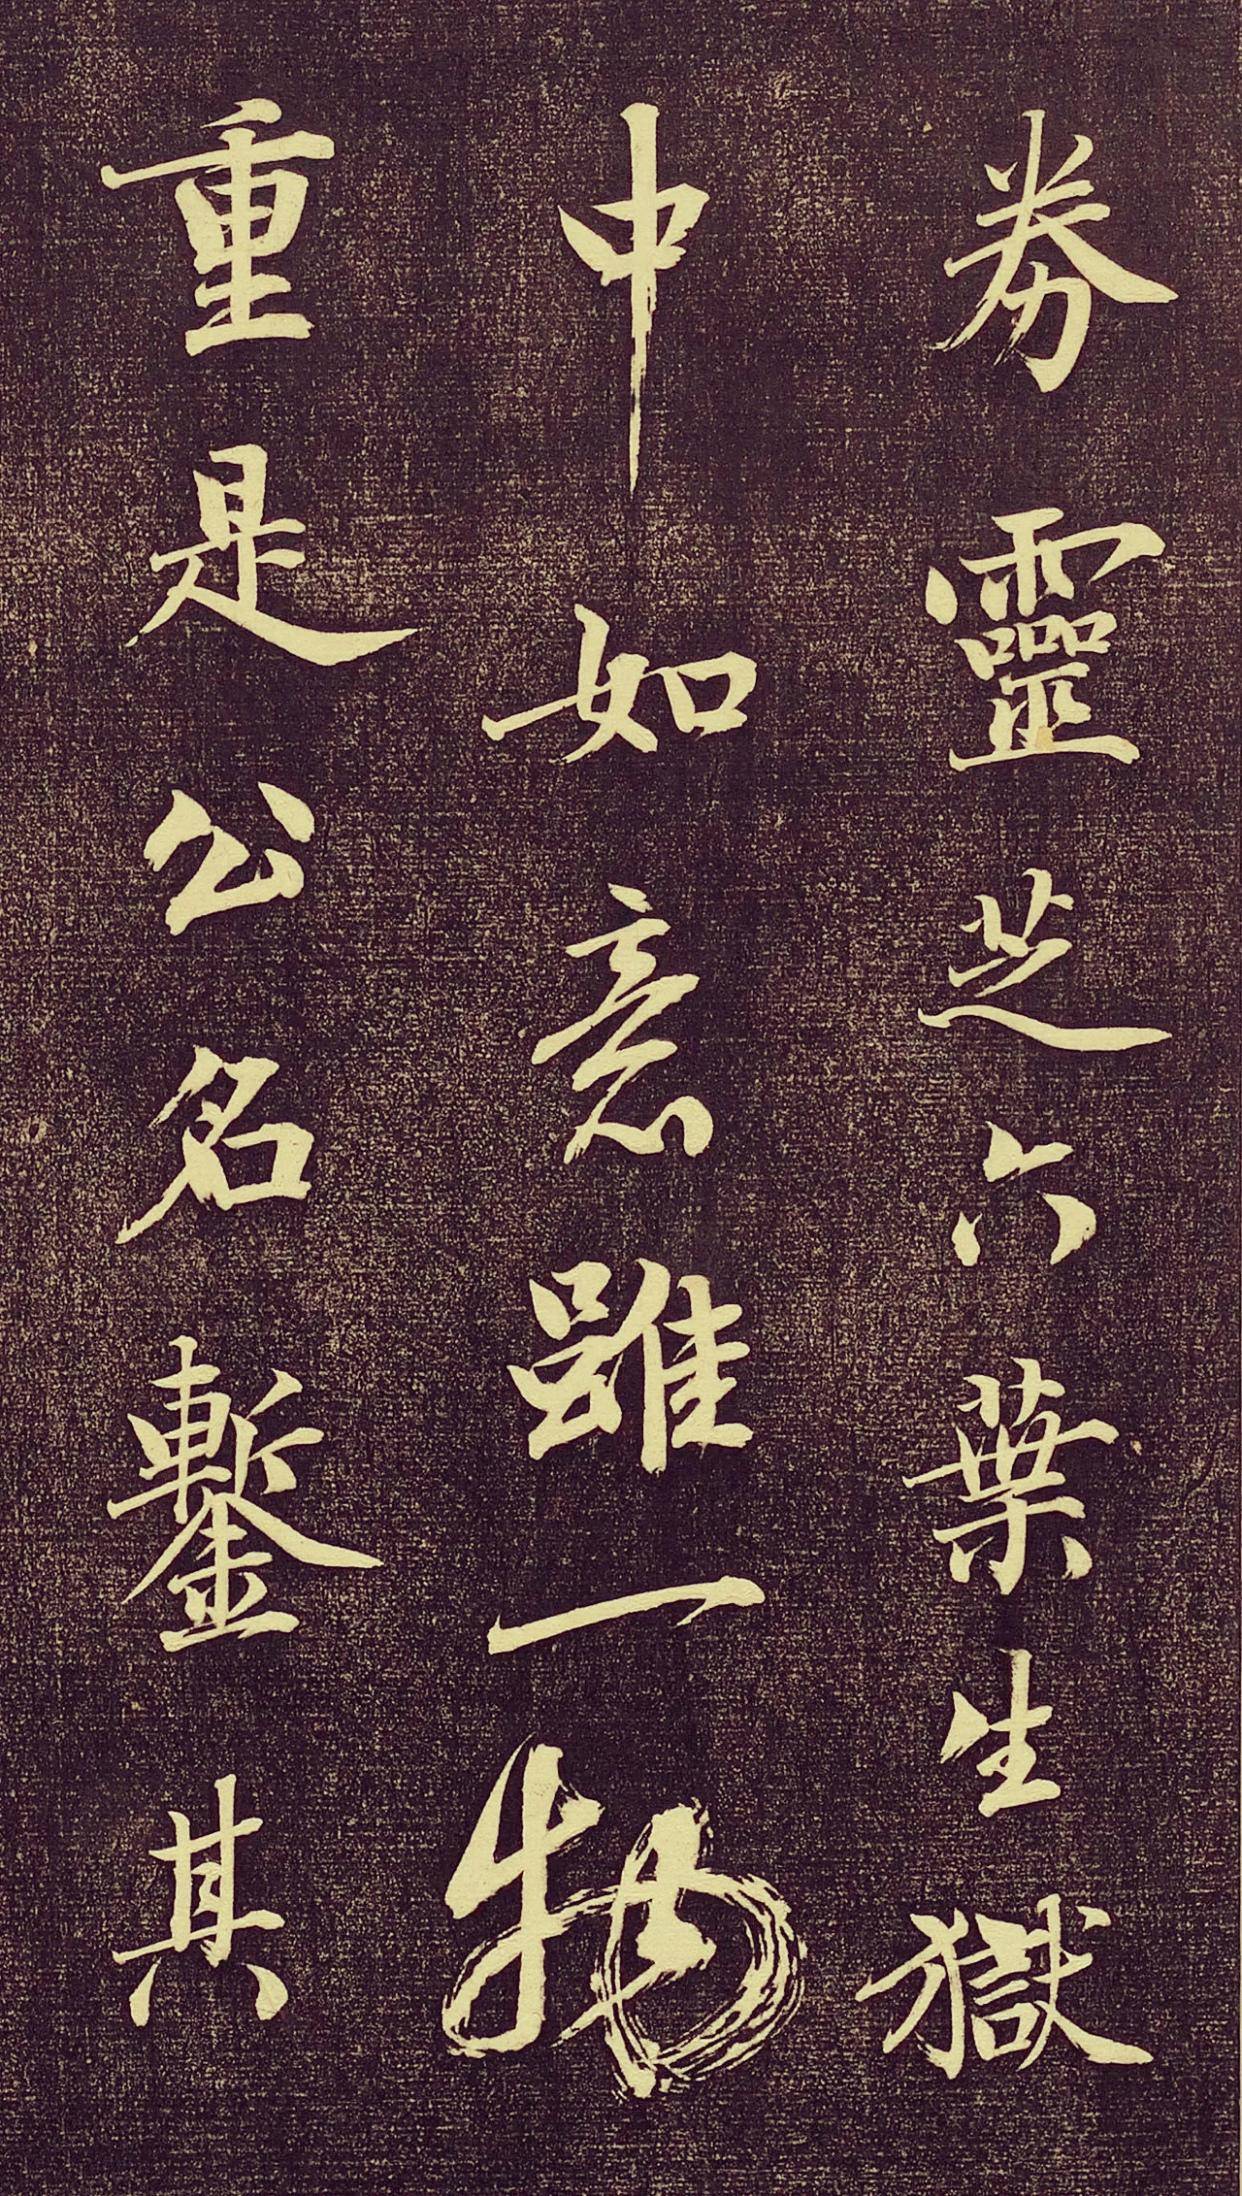 券靈芝六葉生獄
中如意雖一物
重是公名鏨其